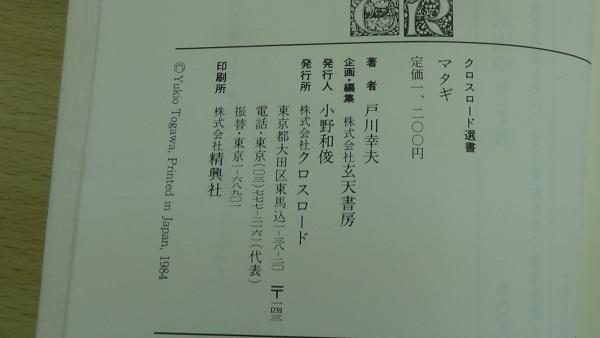 クロスロード選書
マタギ
定価一、二〇〇円
著者 戸川幸夫
企画・編集 株式会社玄天書房
発行人 小野和俊
発行所 株式会社クロスロード
東京都大田区東馬込一-三八-二〇 〒一四三
電話・東京(〇三)七七七-二一六一(代表)
振替・東京一-六八九〇一
印刷所 株式会社精興社
©Yukio Togawa, Printed in Japan, 1984